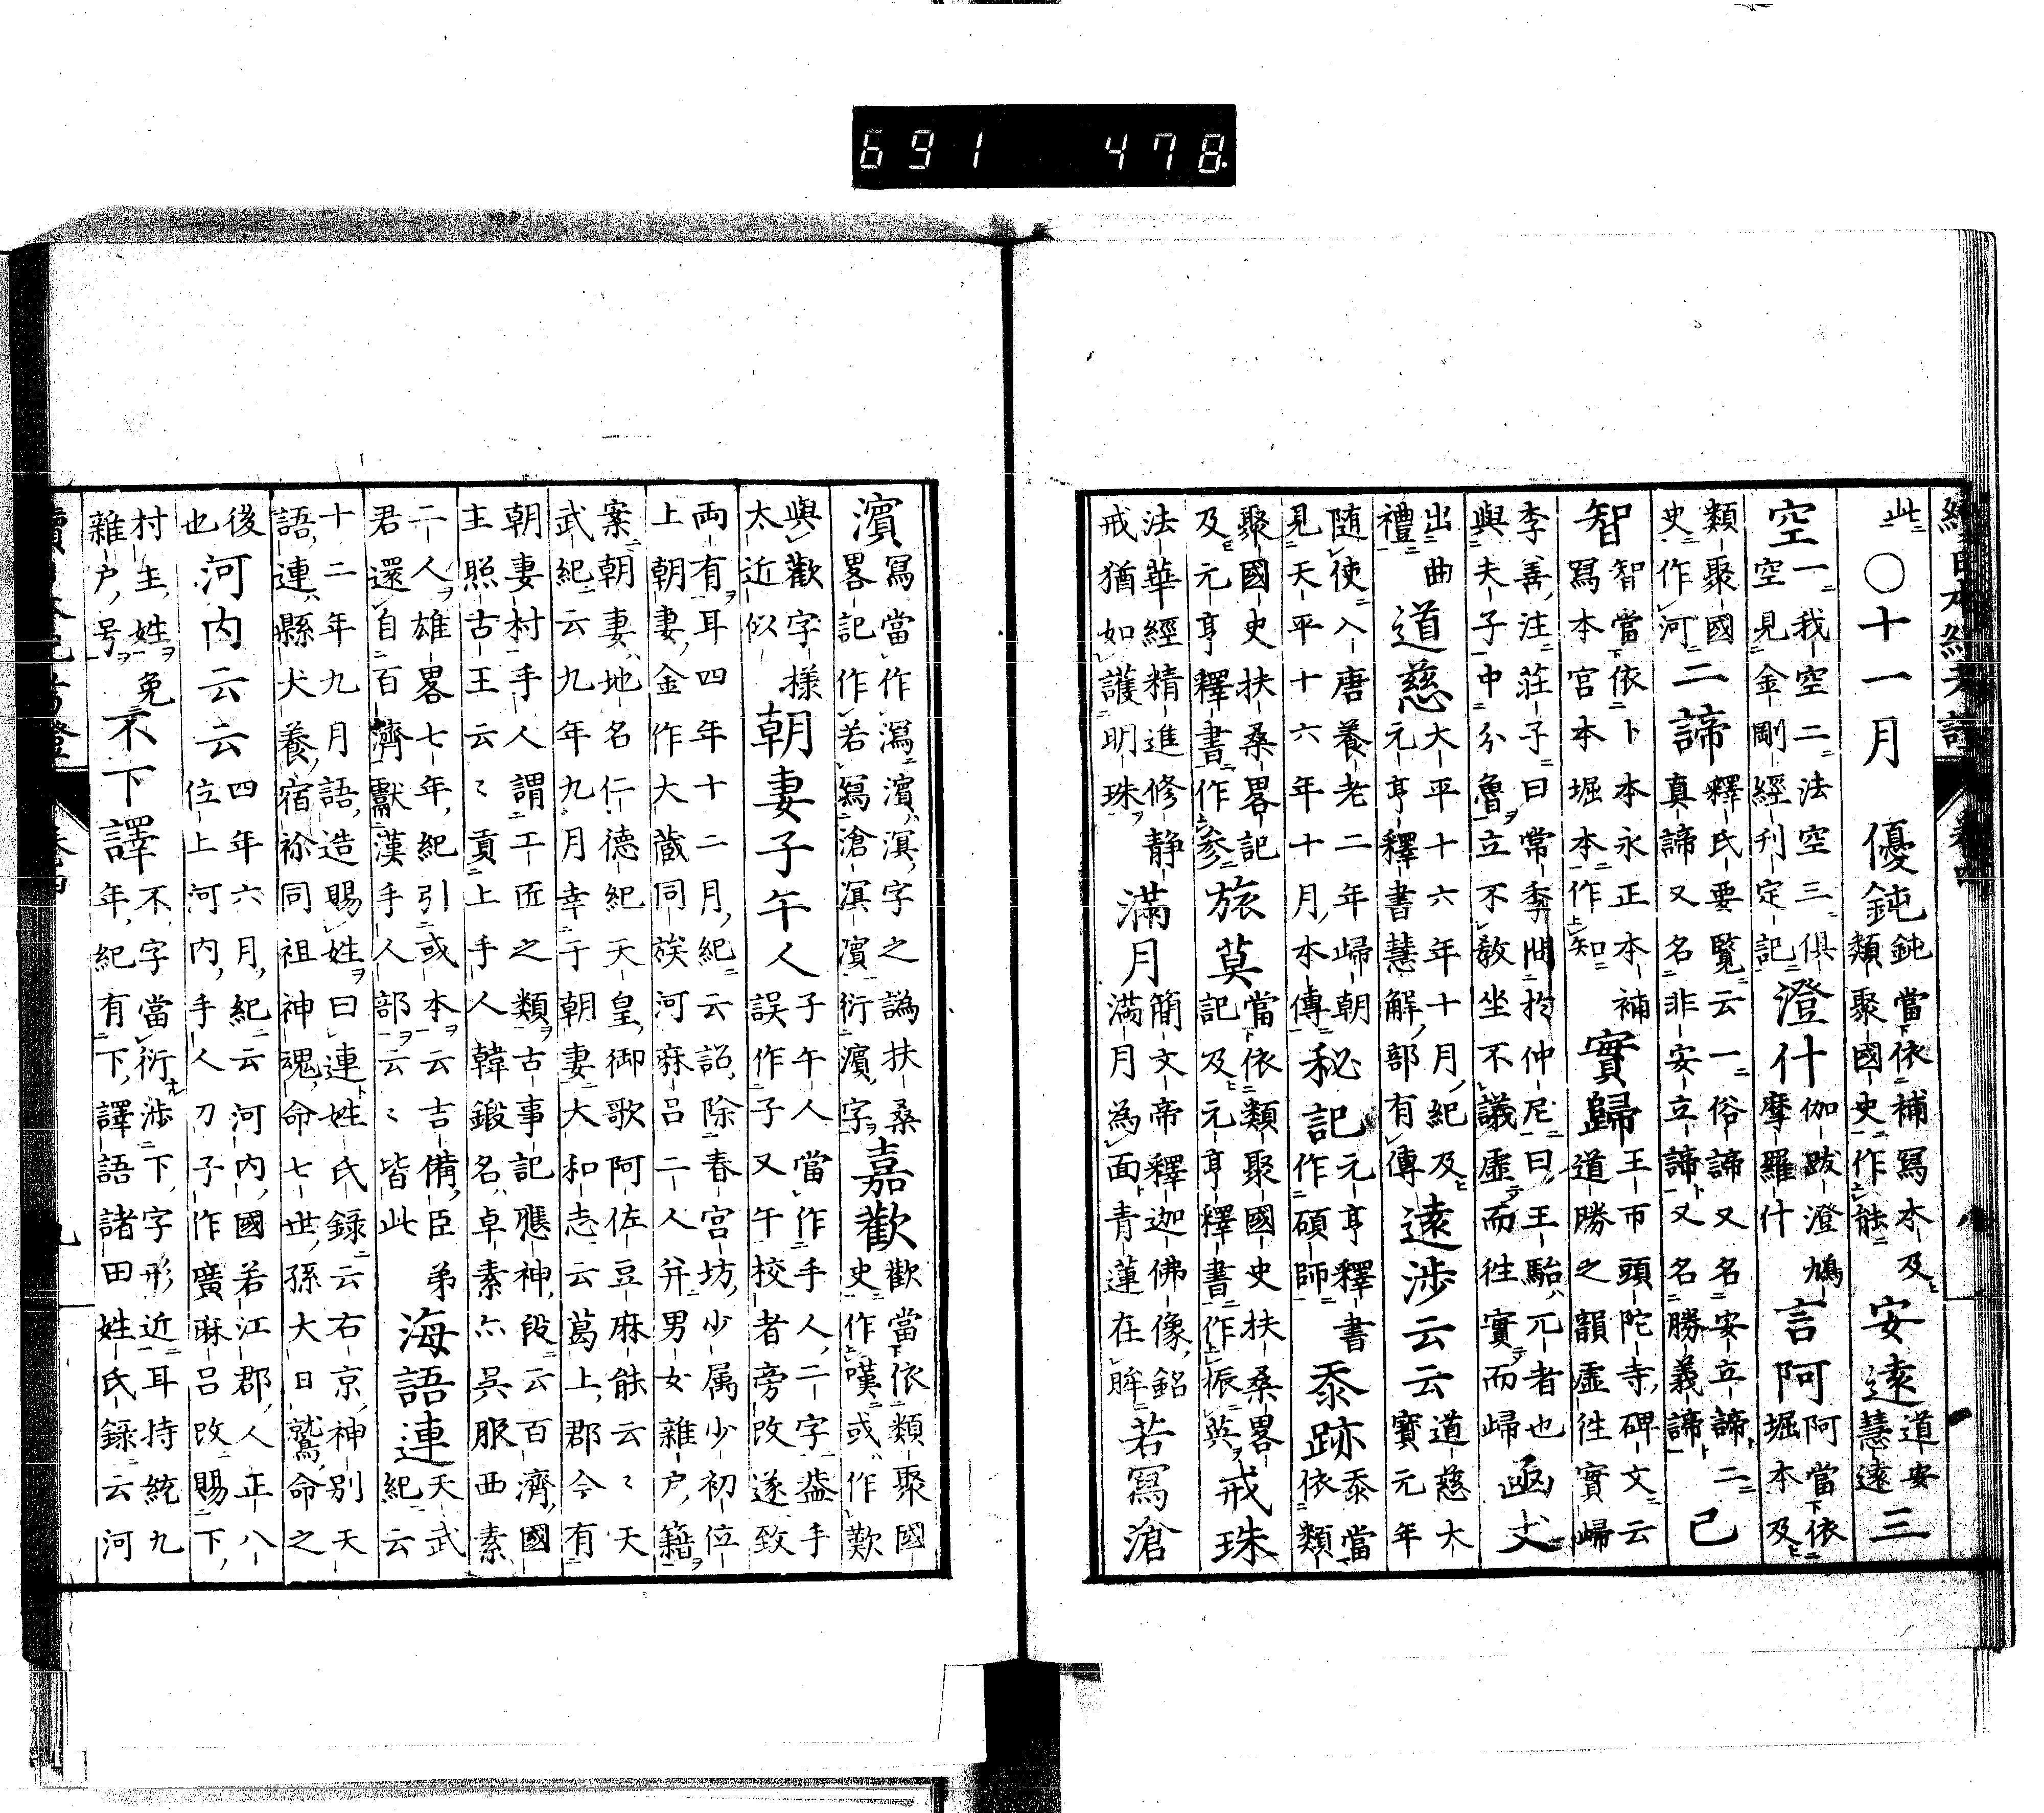 691 478
此 〇十一月 優鈍 鈍當依補寫本及類聚國史作能 安遠 道安慧遠 三
空 一我空二法空三俱空見金剛經刊定記 澄什 伽跋澄鳩摩羅什 言阿 阿當依堀本及
類聚國史作河 二諦 釋氏要覧云一俗諦又名安立諦二真諦又名非安立諦又名勝義諦 已
智 智當依卜本永正本補寫本宮本堀本作知 實歸 王巾頭陀寺碑文云道勝之韻虚徃實歸
李善注莊子曰常季問於仲尼曰王駘兀者也與夫子中分魯立不敎坐不議虚而徃實而歸 函丈
出曲禮 道慈 大平十六年十月紀及元亨釋書慧解部有傳 遠渉云云 道慈大寳元年
随使入唐養老二年歸朝見天平十六年十月本傳 秘記 元亨釋書作碩師 桼跡 桼當依類
聚國史扶桑畧記及元亨釋書作参 旅莫 當依類聚國史扶桑畧記及元亨釋書作振英 戒珠
法華經精進修静戒猶如護明珠 滿月 簡文帝釋迦佛像銘滿月為面青蓮在眸 若寫滄
濵 寫當作瀉濵溟字之譌扶桑畧記作若寫滄溟濵衍濵字 嘉歡 歡當依類聚國史作嘆或作歎
與歡字様太近似 朝妻子午人 子午人當作手人二字益手誤作子又午校者旁改遂致
両有耳四年十二月紀云詔除春宮坊少属少初位上朝妻金作大蔵同族河麻呂二人并男女雜户籍
案朝妻地名仁德紀天皇御歌阿佐豆麻能云〻天武紀云九年九月幸于朝妻大和志云葛上郡今有
朝妻村手人謂工匠之類古事記應神段云百濟國主照古王云〻貢上手人韓鍛名卓素亦呉服西素
二人雄畧七年紀引或本云吉備臣弟君還自百濟獻漢手人部云〻皆此 海語連 天武紀云
十二年九月語造賜姓曰連姓氏録云右京神别天語連縣犬養宿祢同祖神魂命七世孫大日鷲命之
後也 河内云云 四年六月紀云河内國若江郡人正八位上河内手人刀子作廣麻呂改賜下
村主姓免雜户号 不下譯 不字當衍渉下字形近耳持統九年紀有下譯語諸田姓氏録云河